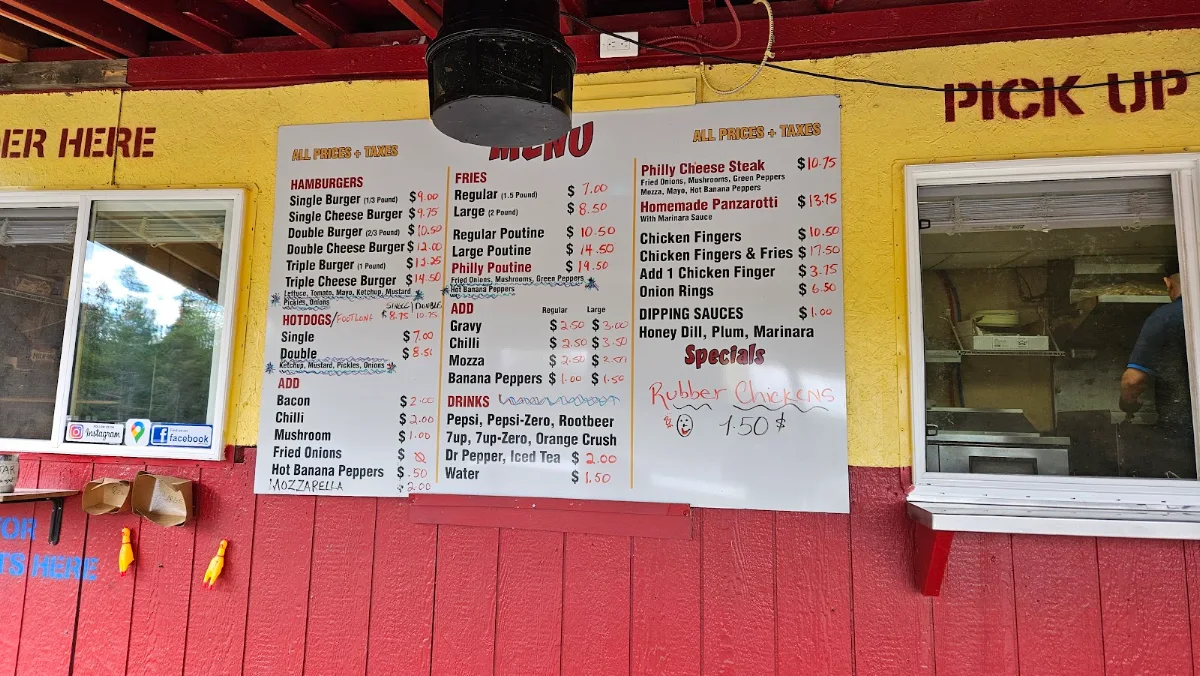 ER HERE
PICK UP
MENU
ALL PRICES + TAXES
HAMBURGERS
Single Burger (1/3 Pound) $9.00
Single Cheese Burger $9.75
Double Burger (2/3 Pound) $10.50
Double Cheese Burger $12.00
Triple Burger (1 Pound) $12.25
Triple Cheese Burger $14.50
Lettuce, Tomato, Mayo, Ketchup, Mustard
Pickles, Onions
SINGLE | DOUBLE
HOTDOGS/FOOTLONG $8.75 10.75
Single $7.00
Double $8.50
Ketchup, Mustard, Pickles, Onions
ADD
Bacon $2.00
Chilli $2.00
Mushroom $1.00
Fried Onions $
Hot Banana Peppers $.50
MOZZARELLA $2.00
FRIES
Regular (1.5 Pound) $7.00
Large (2 Pound) $8.50
Regular Poutine $10.50
Large Poutine $14.50
Philly Poutine $19.50
Fried Onions, Mushrooms, Green Peppers
Hot Banana Peppers
ADD Regular Large
Gravy $2.50 $3.00
Chilli $2.50 $3.50
Mozza $2.50 $
Banana Peppers $1.00 $1.50
DRINKS
Pepsi, Pepsi-Zero, Rootbeer
7up, 7up-Zero, Orange Crush
Dr Pepper, Iced Tea $2.00
Water $1.50
ALL PRICES + TAXES
Philly Cheese Steak $10.75
Fried Onions, Mushrooms, Green Peppers
Mozza, Mayo, Hot Banana Peppers
Homemade Panzarotti $13.75
With Marinara Sauce
Chicken Fingers $10.50
Chicken Fingers & Fries $17.50
Add 1 Chicken Finger $3.75
Onion Rings $6.50
DIPPING SAUCES $1.00
Honey Dill, Plum, Marinara
Specials
Rubber Chickens
1.50 $
Instagram
facebook
TAR
TOR
TS HERE